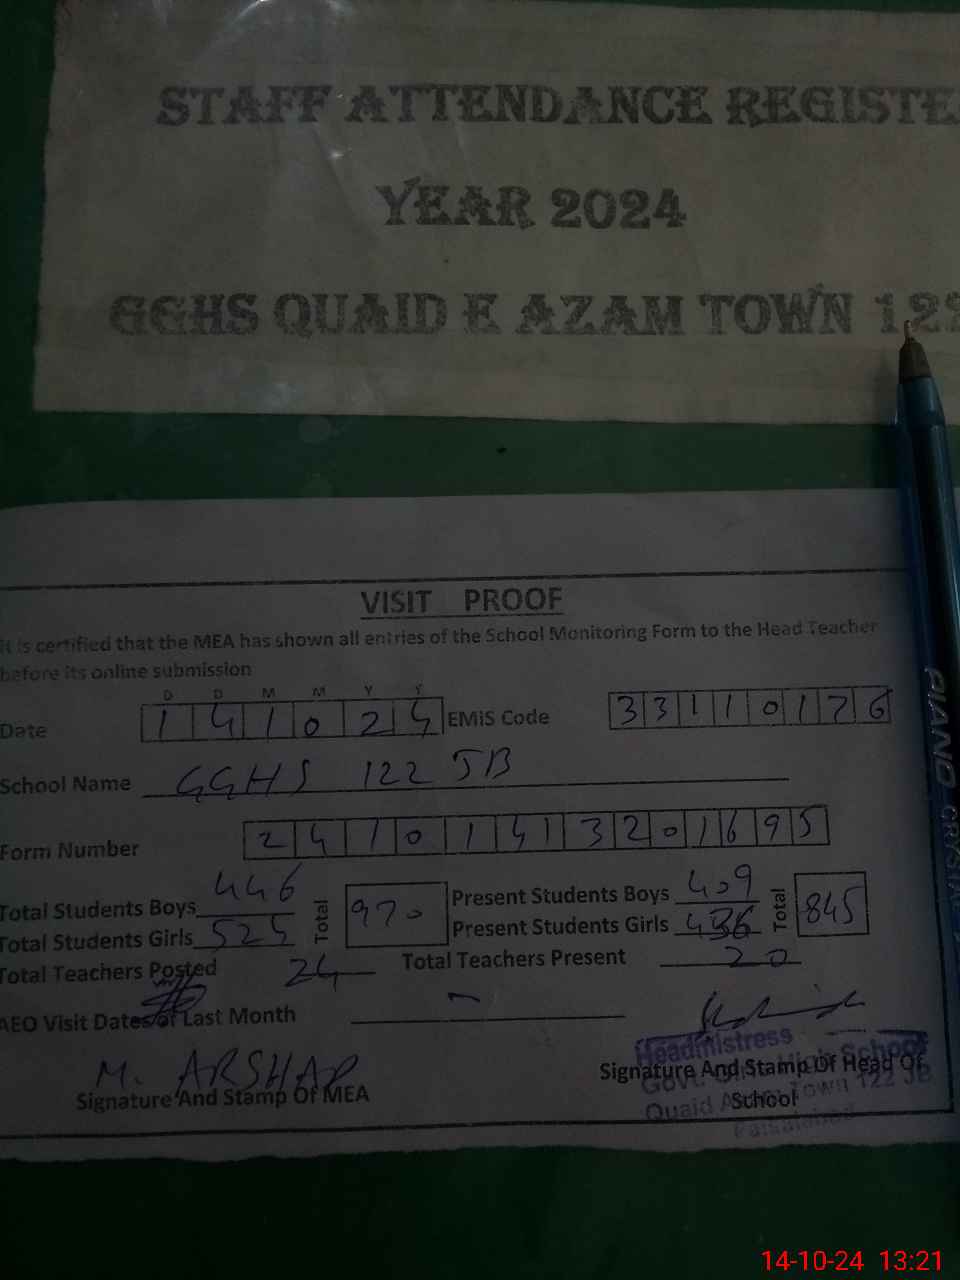 STAFF ATTENDANCE REGISTE
YEAR 2024
GGHS QUAID E AZAM TOWN 122
VISIT PROOF
It is certified that the MEA has shown all entries of the School Monitoring Form to the Head Teacher
before its online submission
D D M M Y Y
Date 1 4 1 0 2 4 EMiS Code 3 3 1 1 0 1 7 6
School Name GGHS 122 JB
Form Number 2 4 1 0 1 4 1 3 2 0 1 6 9 5
Total Students Boys 446 Total 970 Present Students Boys 409 Total 845
Total Students Girls 524 Present Students Girls 436
Total Teachers Posted 24 Total Teachers Present 20
AEO Visit Dates of Last Month
M. ARSHAD
Signature And Stamp Of MEA
Headmistress
Signature And Stamp Of Head Of
School
Govt. Girls High School
Quaid Azam Town 122 JB
Faisalabad
PIANO CRYSTAL
14-10-24 13:21